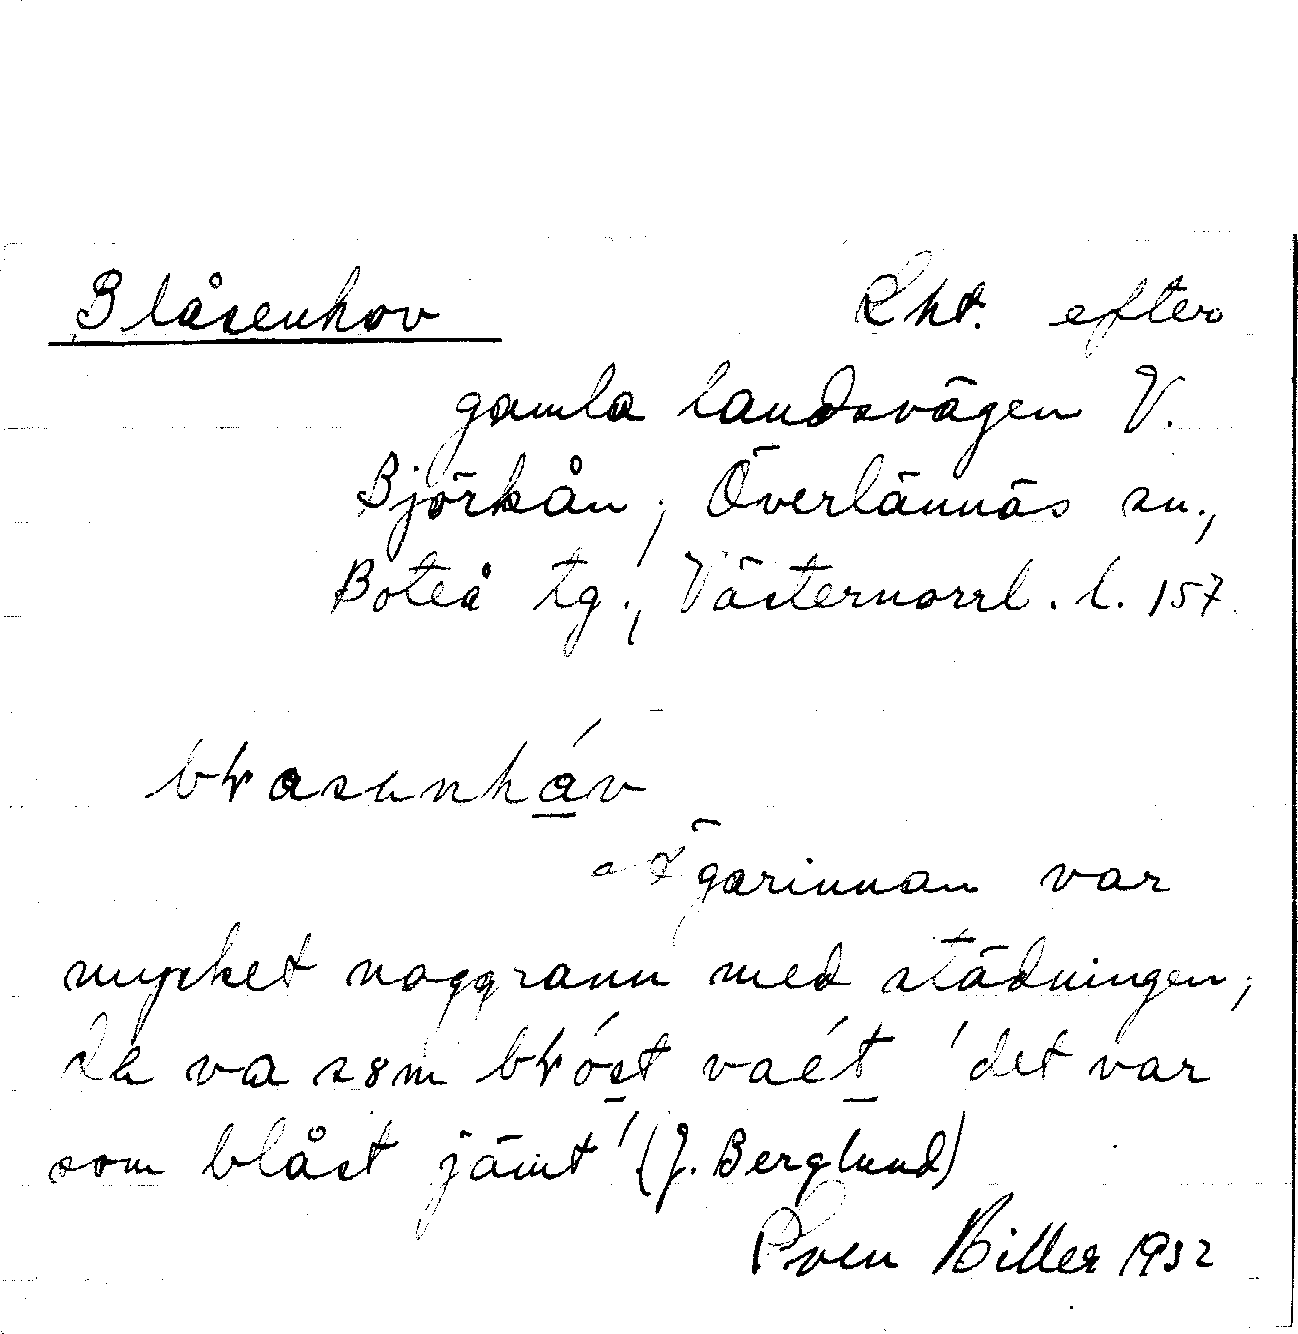 Blåsenhov Lht. efter
gamla landsvägen V.
Björkån, Överlännäs sn.,
Boteå tg., Västernorrl. l. 157.
Ägarinnan var
mycket noggrann med städningen,
va blóst vaét 'det var
som blåst jämt' (J. Berglund)
Sven Biller 1932